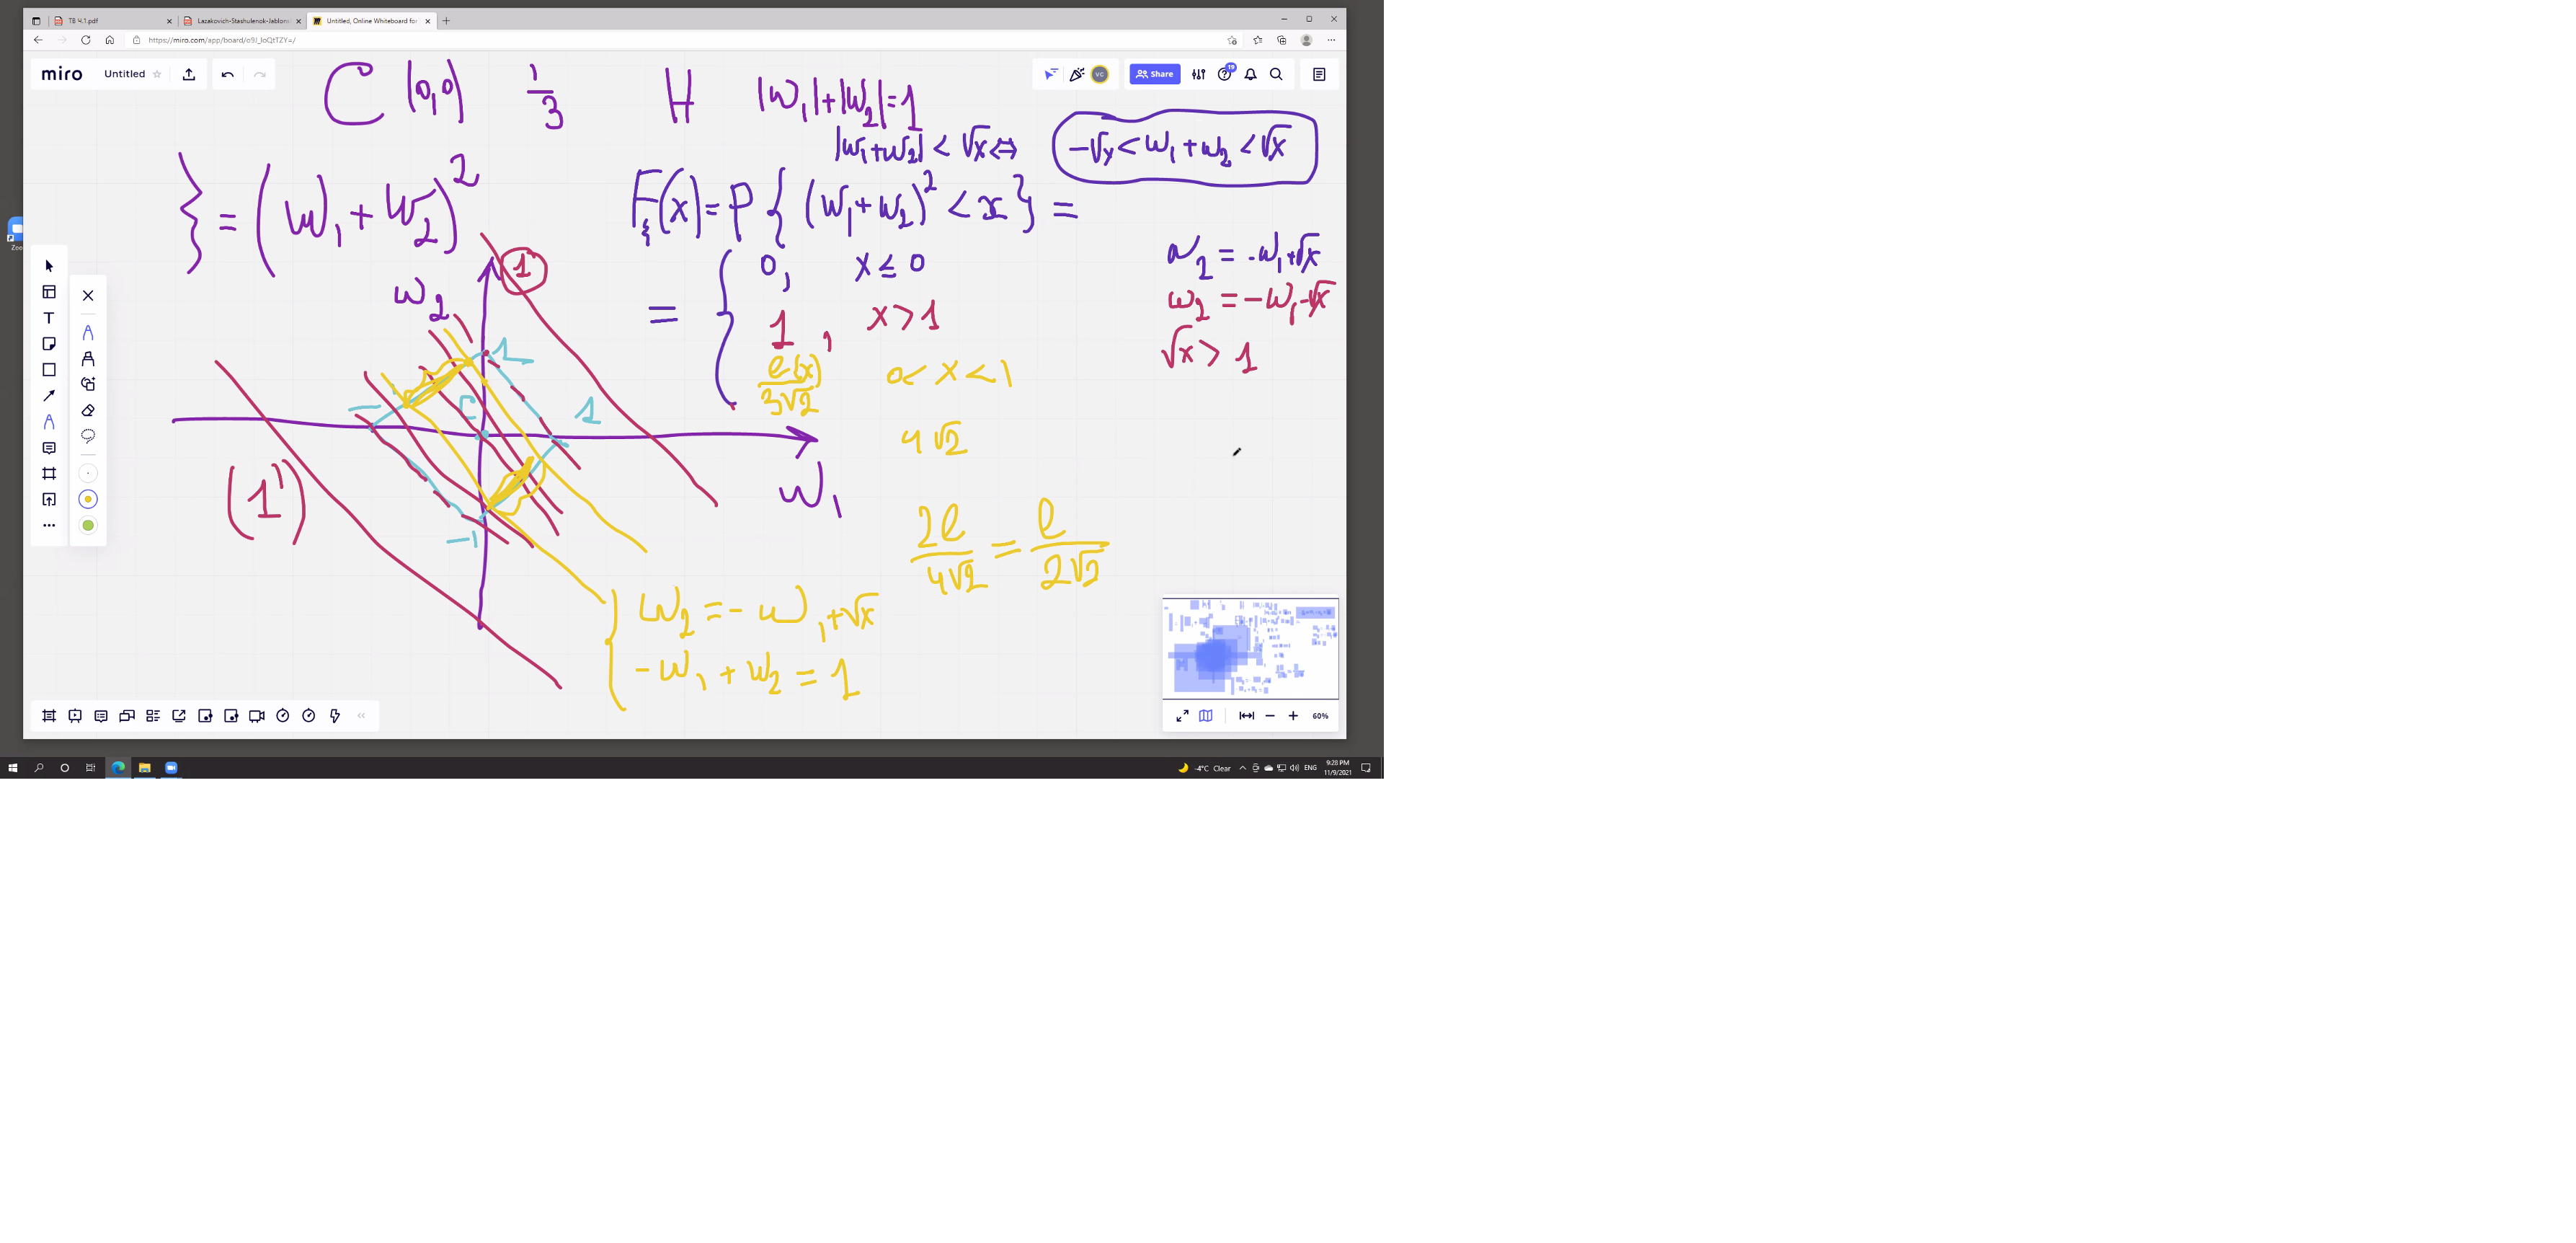 TB 4.1.pdf
Lazakovich-Stashulenok-Jablons
Untitled, Online Whiteboard for
https://miro.com/app/board/o9J_loQtTZY=/
miro
Untitled
VC
Share
19
C (0,0) 1/3 H |w₁|+|w₂|=1
|w₁+w₂| < √x ⇔ -√x < w₁+w₂ < √x
ξ = (w₁+w₂)²
F_ξ(x) = P{(w₁+w₂)² < x} =
= { 0, x ≤ 0
1, x > 1
ℓ(x)/3√2 0 < x < 1
w₂ = -w₁+√x
w₂ = -w₁-√x
√x > 1
4√2
w₂
1
1
1
C
(1')
w₁
-1
2ℓ/4√2 = ℓ/2√2
{ w₂ = -w₁+√x
-w₁+w₂ = 1
T
60%
-4°C Clear
ENG
9:28 PM
11/9/2021